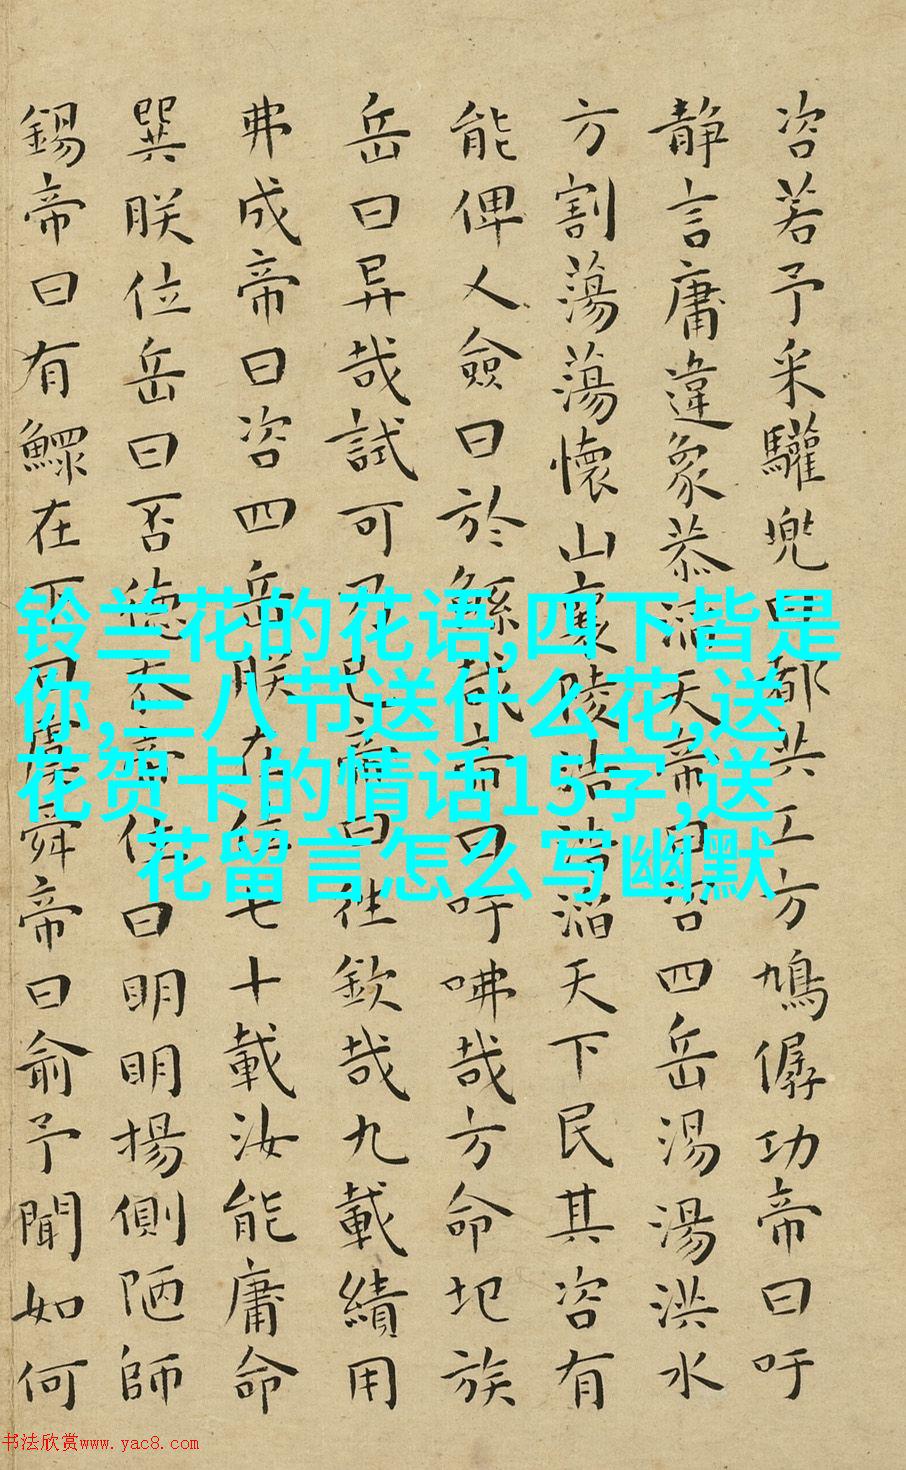 咨若予采驩兜曰都共工方鳩僝功帝曰吁
靜言庸違象恭滔天帝曰咨四岳湯湯洪水
方割蕩蕩懷山襄陵浩浩滔天下民其咨有
能俾乂僉曰於鯀哉帝曰吁咈哉方命圮族
岳曰异哉試可乃已帝曰往欽哉九載績用
弗成帝曰咨四岳朕在位七十載汝能庸命
巽朕位岳曰否德忝帝位曰明明揚側陋師
錫帝曰有鰥在下曰虞舜帝曰俞予聞如何
铃兰花的花语,四下皆是
你,三八节送什么花,送
花贺卡的情话15字,送
花留言怎么写幽默
书法欣赏www.yac8.com